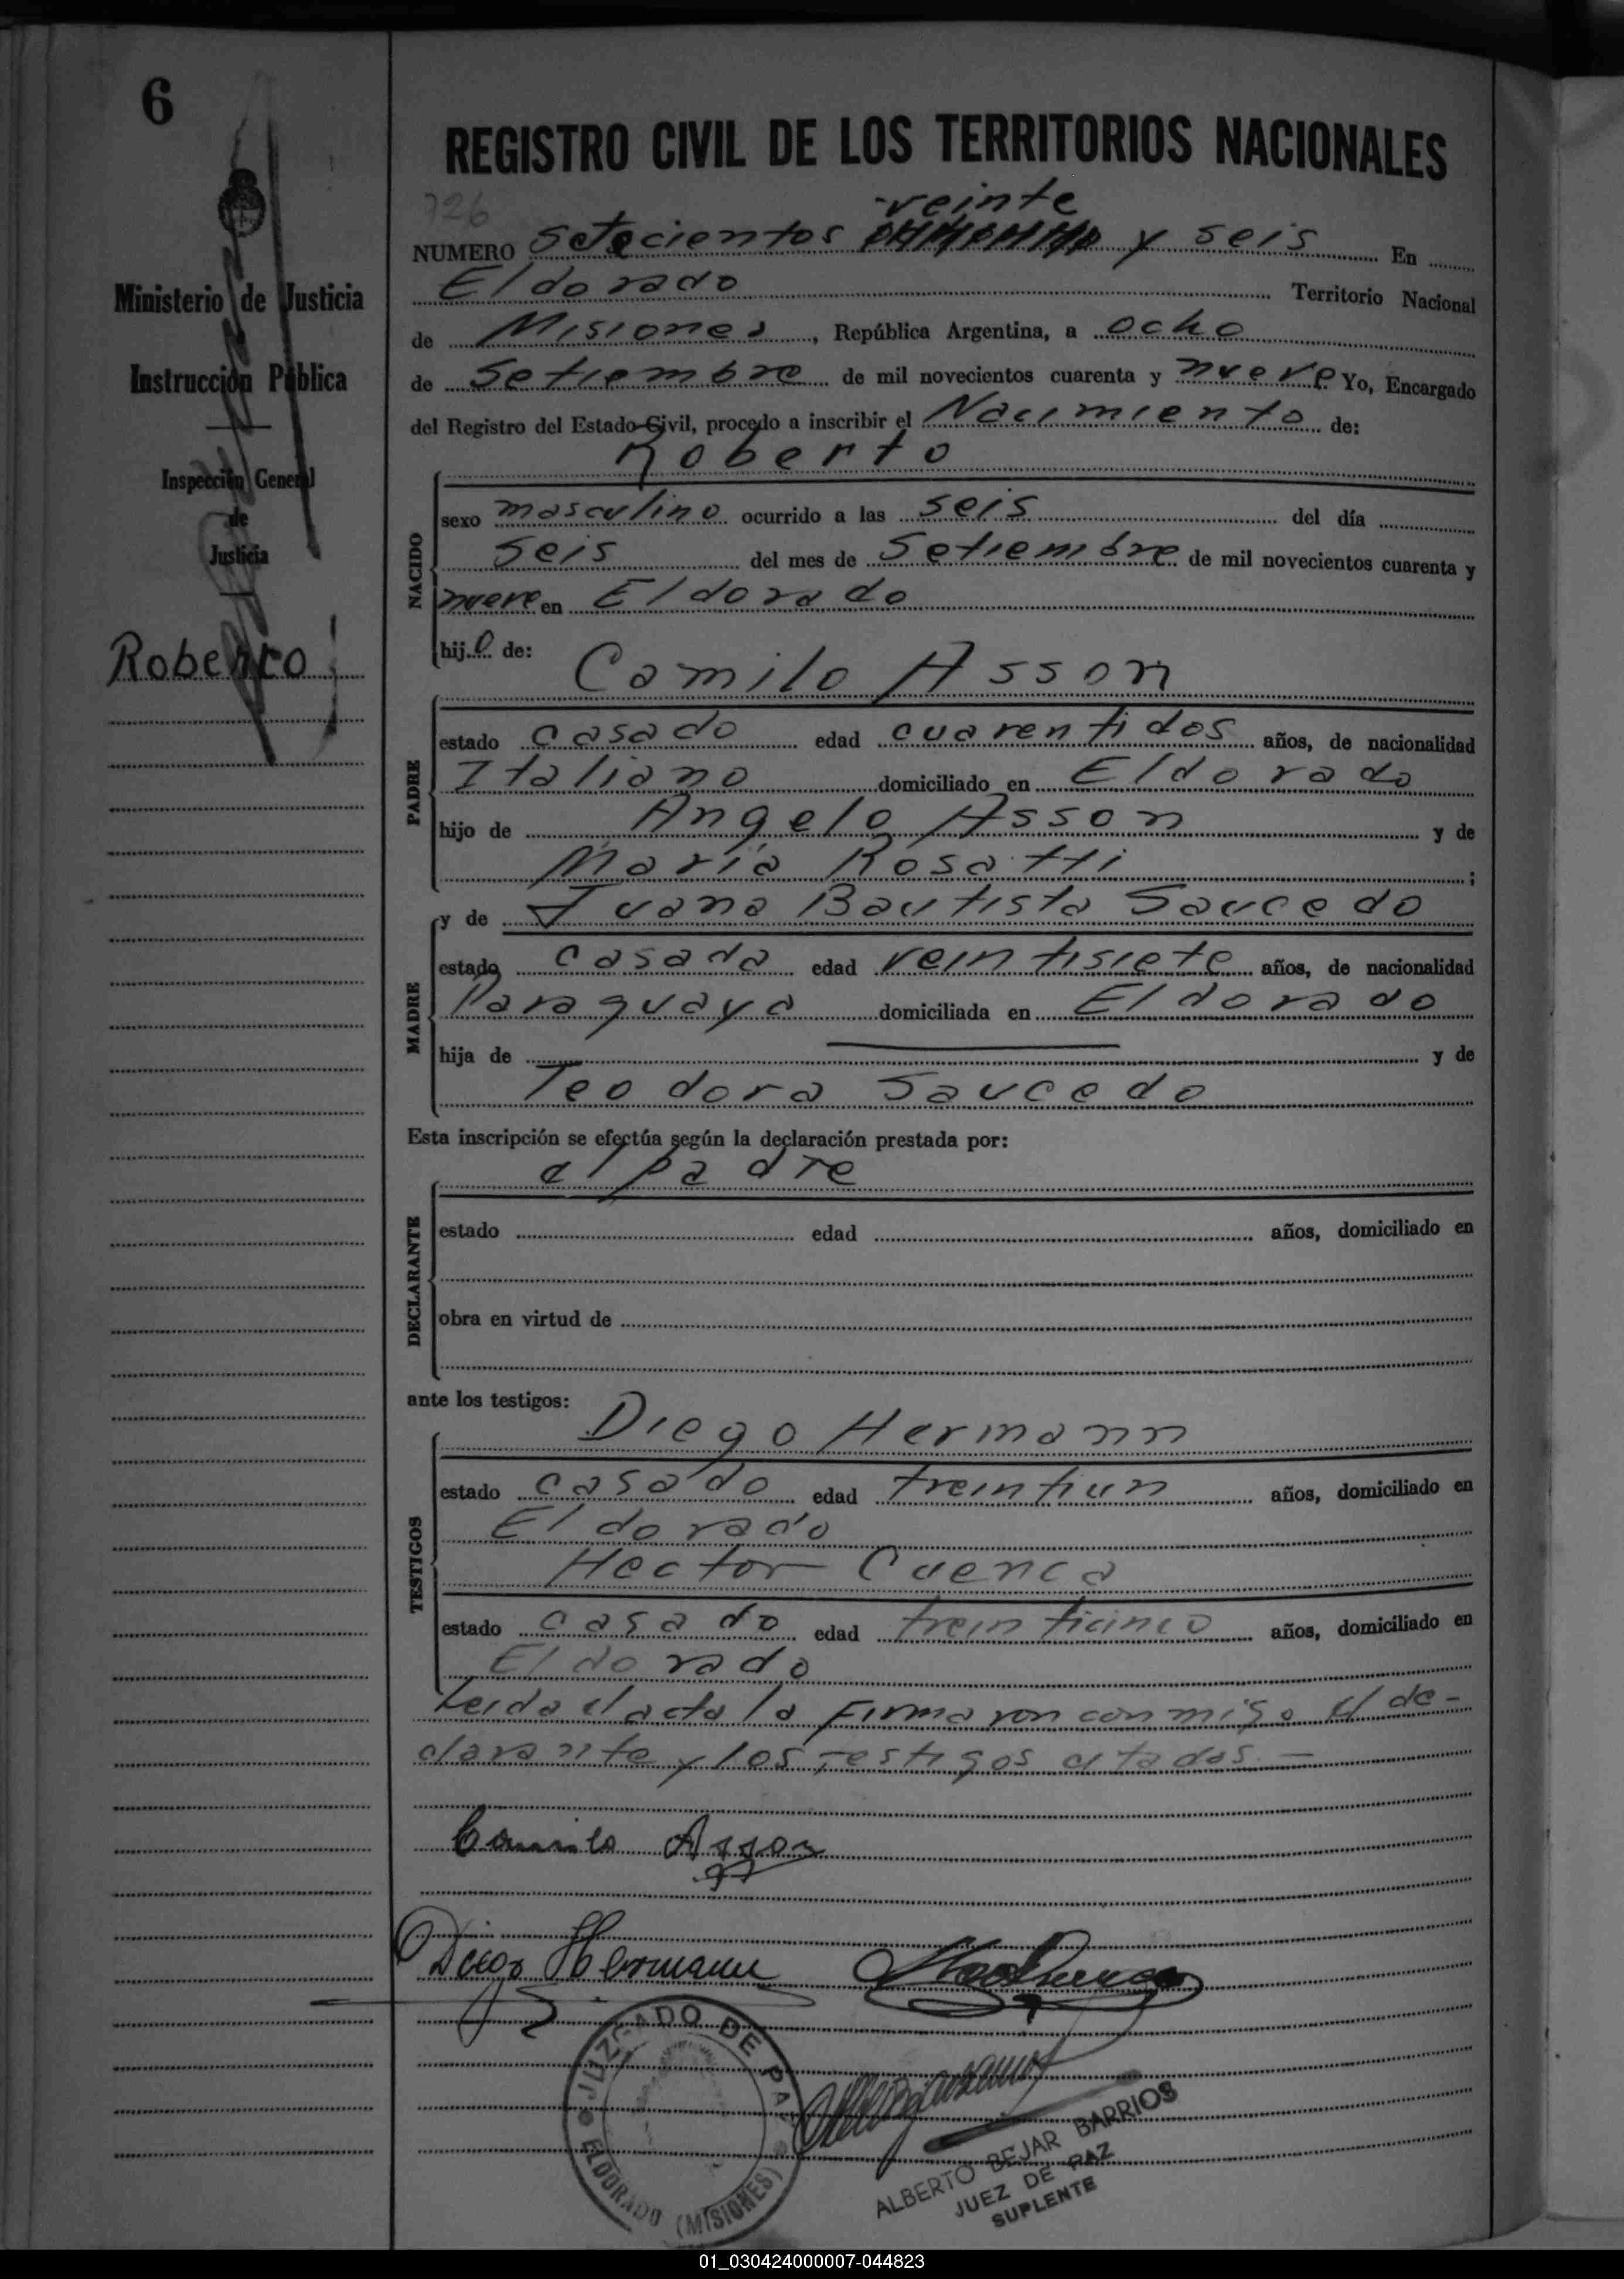 6
Ministerio de Justicia
Instrucción Pública
Inspección General
de
Justicia
Roberto
REGISTRO CIVIL DE LOS TERRITORIOS NACIONALES
726
veinte
NUMERO Setecientos y seis En
Eldorado Territorio Nacional
de Misiones, República Argentina, a ocho
de Setiembre de mil novecientos cuarenta y nueve Yo, Encargado
del Registro del Estado Civil, procedo a inscribir el Nacimiento de:
Roberto
NACIDO
sexo masculino ocurrido a las seis del día
seis del mes de Setiembre de mil novecientos cuarenta y
nueve en Eldorado
hijo de: Camilo Asson
PADRE
estado casado edad cuarentidos años, de nacionalidad
Italiano domiciliado en Eldorado
hijo de Angelo Asson y de
María Rosatti;
MADRE
y de Juana Bautista Saucedo
estado casada edad veintisiete años, de nacionalidad
Paraguaya domiciliada en Eldorado
hija de ——— y de
Teodora Saucedo
Esta inscripción se efectúa según la declaración prestada por:
el padre
DECLARANTE
estado edad años, domiciliado en
obra en virtud de
ante los testigos:
Diego Hermann
TESTIGOS
estado casado edad treintiun años, domiciliado en
Eldorado
Hector Cuenca
estado casado edad treinticinco años, domiciliado en
Eldorado
Leida el acta la firmaron conmigo el de-
clarante y los testigos citados.—
Camilo Asson
Diego Hermann
JUZGADO DE PAZ
ELDORADO (MISIONES)
ALBERTO BEJAR BARRIOS
JUEZ DE PAZ
SUPLENTE
01_030424000007-044823